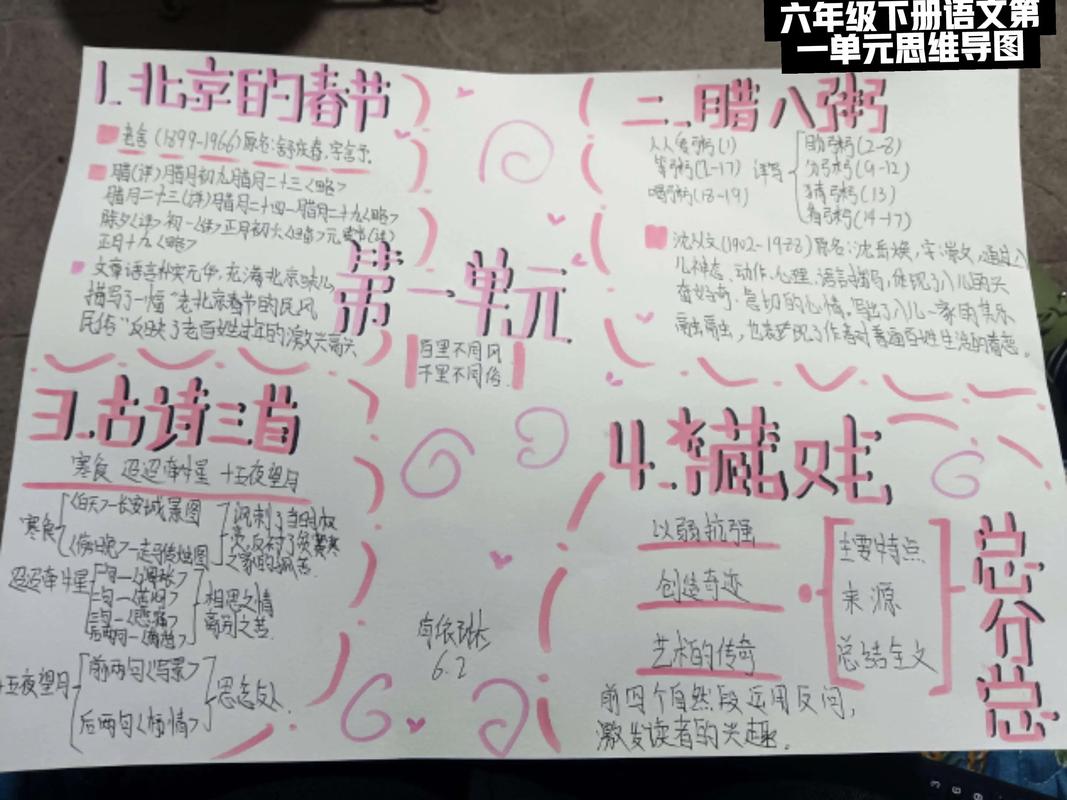 六年级下册语文第
一单元思维导图
1.北京的春节
老舍(1899-1966)原名:舒庆春,字舍予.
腊(详)腊月初九腊月二十三<略>
腊月二十三(详)腊月二十四一腊月二十九<略>
除夕<详>初一<详>正月初六<略>元宵节(详)
正月十九<略>
文章语言朴实无华,充满北京味儿,
描写了一幅"老北京春节的民风
民俗"反映了老百姓过年的激
第一单元
百里不同风
千里不同俗.
二.腊八粥
人人食粥(1)
等粥(2-17) 详写
喝粥(18-19)
盼粥(2-8)
分粥(9-12)
猜粥(13)
看粥(14-17)
沈从文(1902-1988)原名:沈岳焕,字:崇文,通过八
儿神态、动作、心理、语言描写,体现了八儿的兴
奋好奇、急切的心情。写出了八儿一家的其乐
融融,也表现了作者对普通百姓生活的眷恋。
3.古诗三首
寒食 迢迢牵牛星 十五夜望月
寒食
<白天>一长安城景图
<傍晚>一走马传烛图
讽刺了当时权
迢迢牵牛星
相思之情
离别之苦.
十五夜望月
前两句<写景>
后两句<抒情>
思念友人.
依琳
6.2
4.藏戏
以弱抗强
创造奇迹
艺术的传奇
主要特点
来源
总结全文
总分总
前四个自然段运用反问,
激发读者的兴趣.